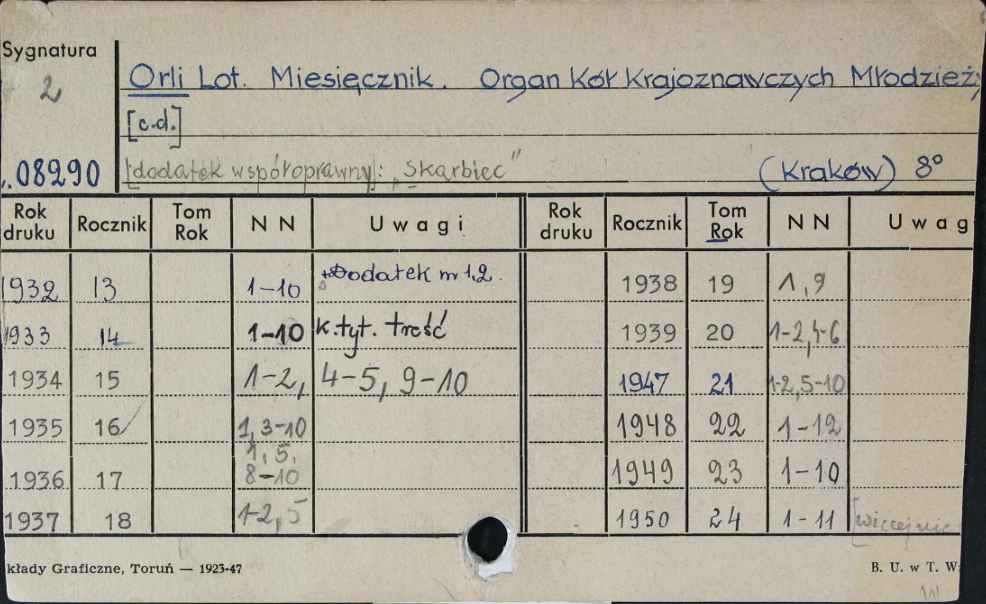 Sygnatura
2
Orli Lot. Miesięcznik. Organ Kół Krajoznawczych Młodzieży
[c.d.]
08290 [dodatek współoprawny: „Skarbiec" (Kraków) 8°
Rok druku Rocznik Tom Rok N N Uwagi Rok druku Rocznik Tom Rok N N Uwag
1932 13 1-10 +Dodatek nr 1,2. 1938 19 1,9
1933 14 1-10 k.tyt. treść 1939 20 1-2,4-6
1934 15 1-2, 4-5, 9-10 1947 21 1-2,5-10
1935 16 1,3-10 1948 22 1-12
1936 17 1,5, 8-10 1949 23 1-10
1937 18 1-2,5 1950 24 1-11 [więcej nie
kłady Graficzne, Toruń — 1923-47 B. U. w T. W